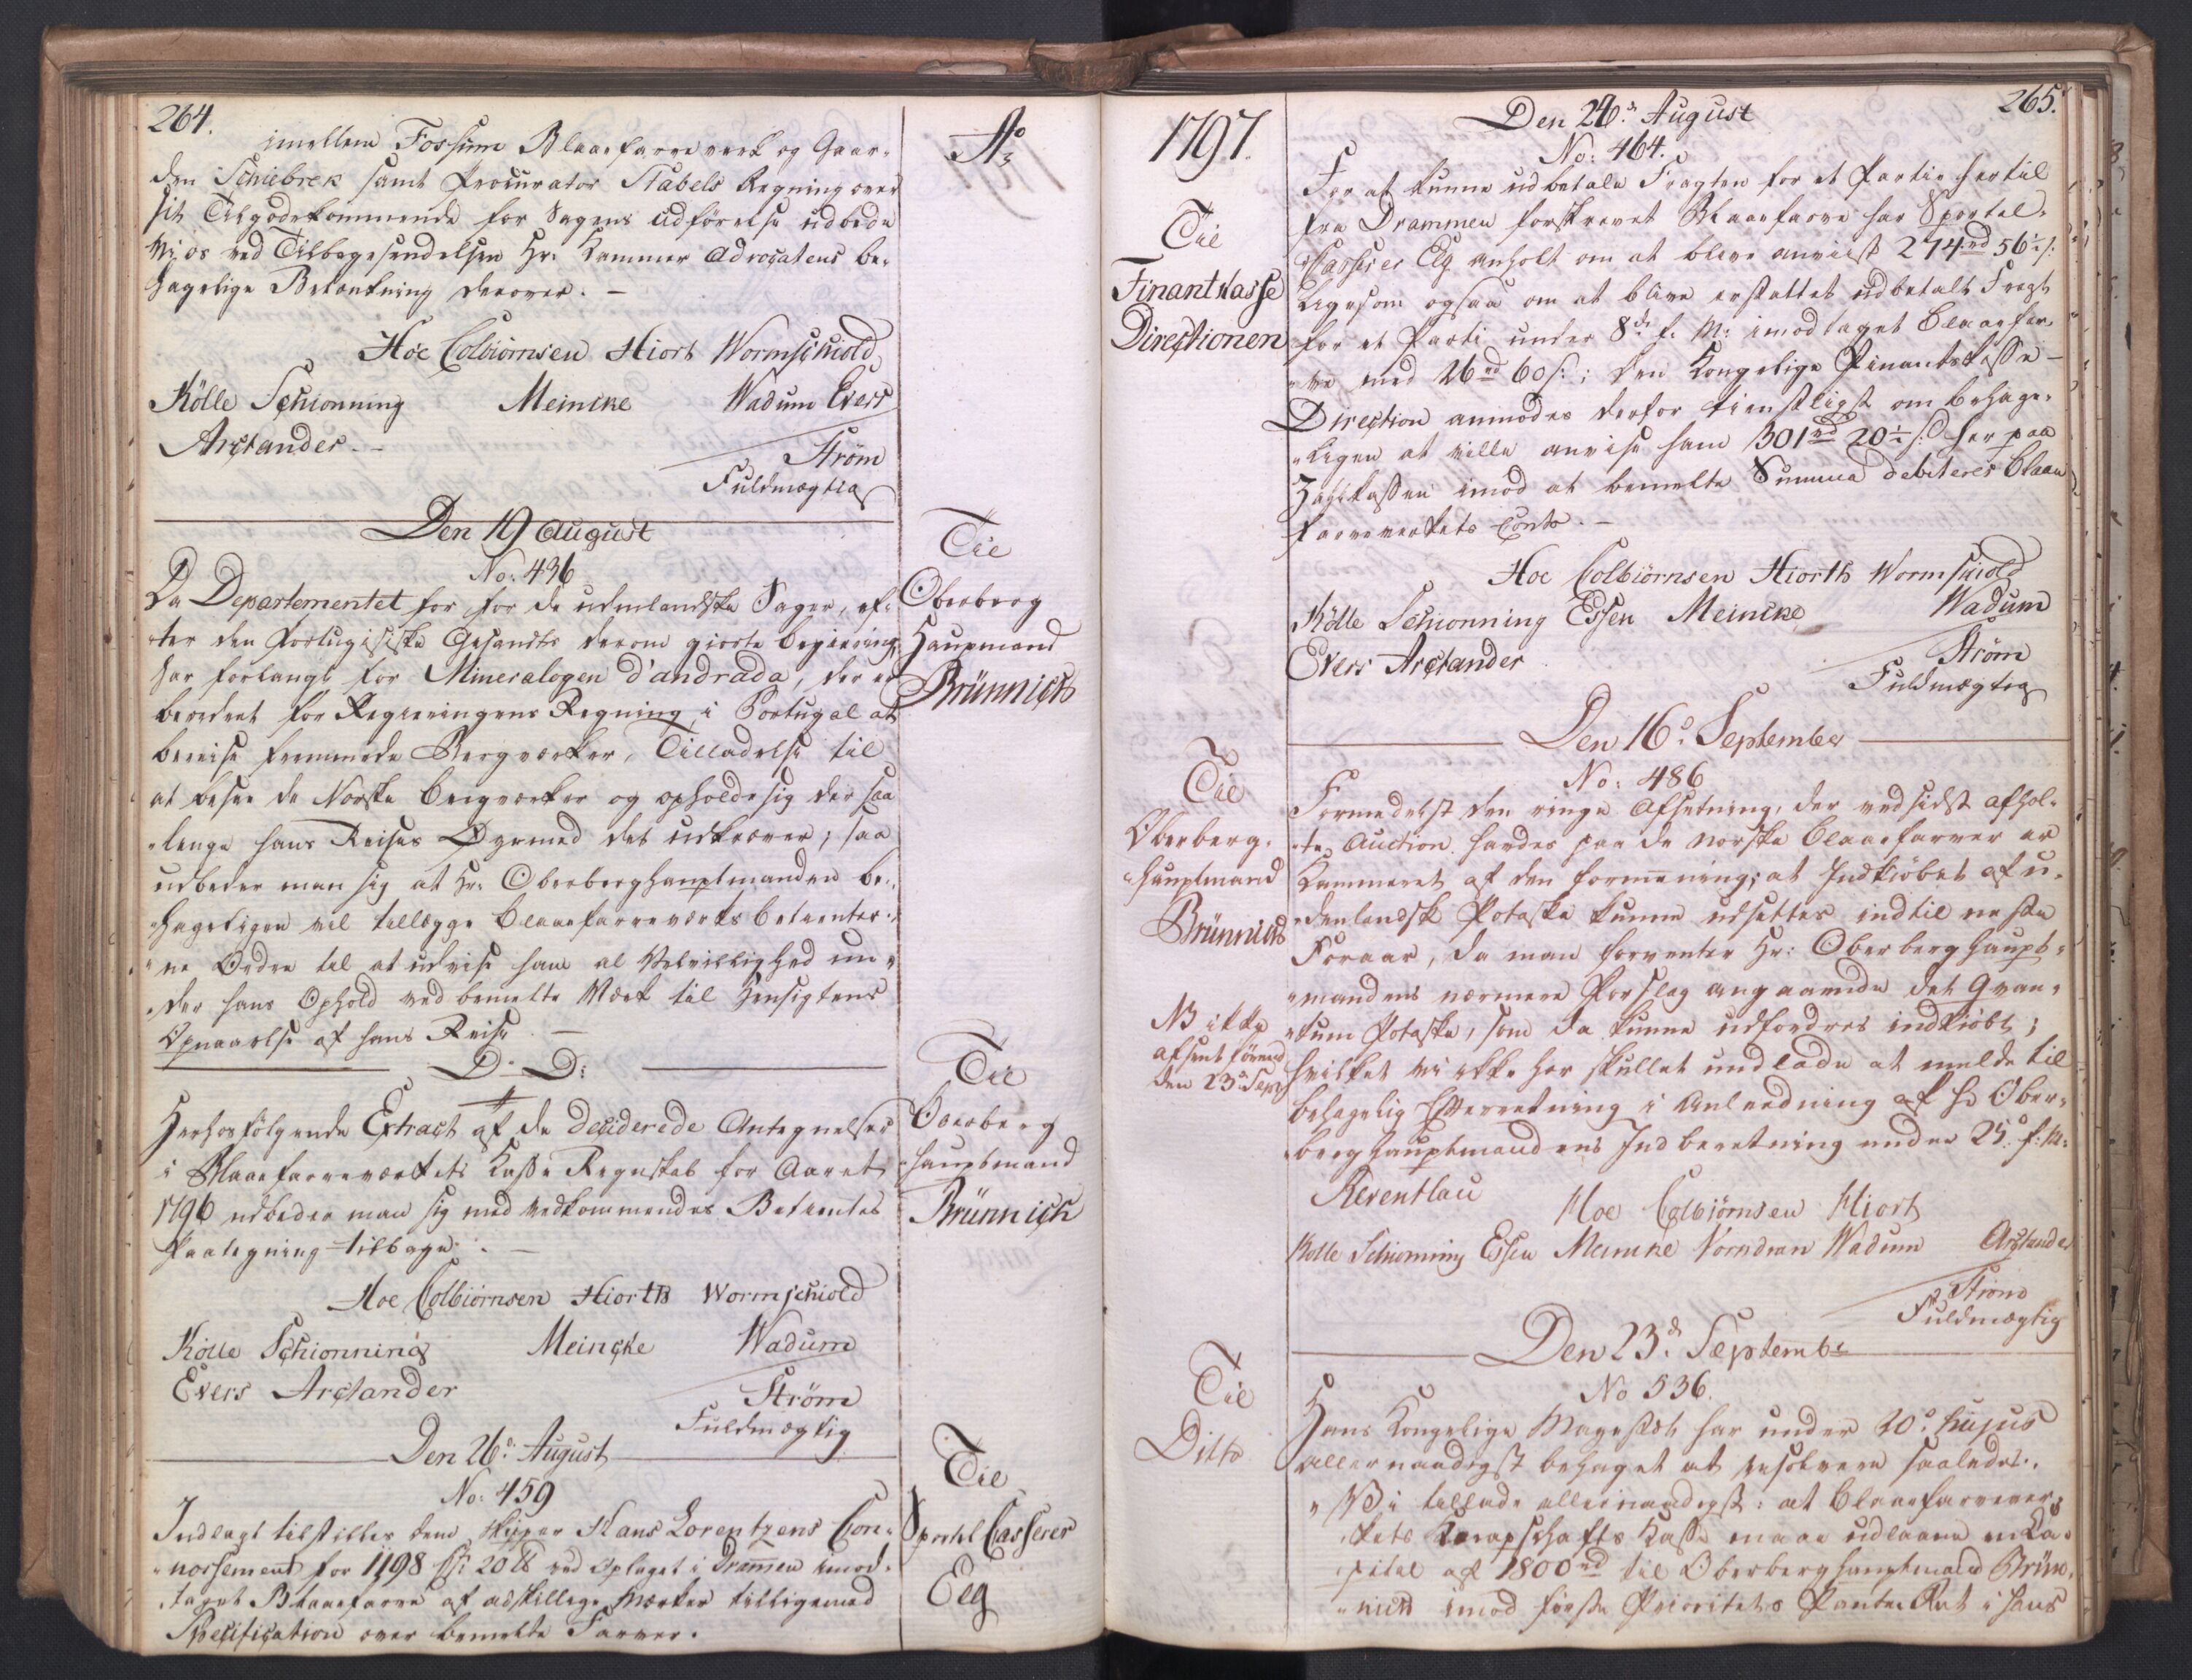 264.
imellem Fossum Blaaefarveverk og Gaar-
den Schiebrek samt Procurator Stabels Regning over
sit Tilgodekommende for Sagens Udförelse udbede
vi os ved Tilbagesendelsen Hr. Kammer Advocatens be-
hagelige Betænkning derover. —
Hoe Colbiörnsen Hiort Wormschiold
Kölle Schionning Meincke Wadum Evers
Arctander. -
Ström
Fuldmægtig
Den 19 August
No: 436
Da Departementet for for de udenlandske Sager, ef-
ter den portugisiske Gesandts derom giorte begiering,
har forlangt for Mineralogen d'andrada, der er
beordret for Regieringens Regning i Portugal at
bereise fremmede Bergverker, Tilladelse til
at besee de Norske bergverker og opholde sig der saa
længe hans Reises Øyemed det udkræver; saa
udbeder man sig at Hr. Oberberghauptmanden be-
hageligen vil tillegge blaaefarveverks betienter-
ne Ordre til at udvise ham al Velvillighed un-
der hans Ophold ved bemelte Værk til Hensigtens
Opnaaelse af hans Reise. —
D: D:
Herhosfölgende Extract af de deciderede Antegnelser
i Blaaefarveverkets Kasse Regnskab for Aaret
1796 udbeder man sig med vedkommendes Betientes
Paategning tilbage. —
Hoe Colbiörnsen Hiorth Wormschiold
Kölle Schionning Meincke Wadum
Evers Arctander
Ström
Fuldmægtig
Den 26. August
No: 459
Indlagt tilstilles dem Skipper Hans Lorentzens Con-
nossement for 1198 20 ved Oplaget i Drammen imod-
taget Blaaefarve af adskillige Merker tilligemed
Specification over bemelte Farver.
Ao
Til
Oberberg
Haupmand
Brünnich
Til
Oberberg
hauptmand
Brünnich
Til
Sportel Casserer
Elg
1797.
Til
Finantkasse
Directionen
Til
Oberberg-
hauptmand
Brünnich
NB ikke
afsent förend
den 23 Sept
Til
Ditto
265.
Den 26. August
No: 464.
For at kunne udbetale Fragten for et Partie hertil
fra Drammen forskrevet Blaaefarve har Sportel-
Casserer Elg anholt om at blive anviist 274 rd 56½ s.
ligesom ogsaa om at blive erstattet udbetalt Fragt
for et Parti under 8de f. M. imodtaget blaaefar-
ve med 26 rd 60 s.; den Kongelige Finantskasse
Direction anmodes derfor tienstligst om behage-
ligen at ville anvise ham 301 rd 20½ s. her paa
Zahlkassen imod at bemelte Summa debiteres blaae
farveverkets Conto. —
Hoe Colbiörnsen Hiorth Wormschiold
Kölle Schionning Essen Meincke Wadum
Evers Arctander
Ström
Fuldmægtig
Den 16. September
No: 486
Formedelst den ringe Afsetning, der ved sidst afhol-
te Auction havdes paa de norske blaaefarver er
Kammeret af den formening, at Indkiöbet af u-
denlandsk Potaske kunne udsettes indtil neste
Foraar, da man forventer Hr. Oberberghaupt-
mandens nærmere Forslag angaaende det Qvan-
tum Potaske, som da kunne udfordres indkiöbt;
hvilket vi ikke har skullet undlade at melde til
behagelig Efterretning i Anledning af Hr. Ober-
berghauptmandens Indberetning under 25. f. M.
Reventlau Hoe Colbiörnsen Hiort
Kölle Schionning Essen Meincke Vorndran Wadum Arctander
Ström
Fuldmægtig
Den 23. Septembr
No 536.
Hans Kongelige Mayestæt har under 20. hujus
allernaadigst behaget at resolvere saaledes.
"Vi tillade allernaadigst: at blaaefarvever-
kets Knapschafts Kasse maae udlaane en Ca-
pital af 1800 rd til Oberberghauptmand Brün-
nich imod förste Prioritets Pante Ret i hans